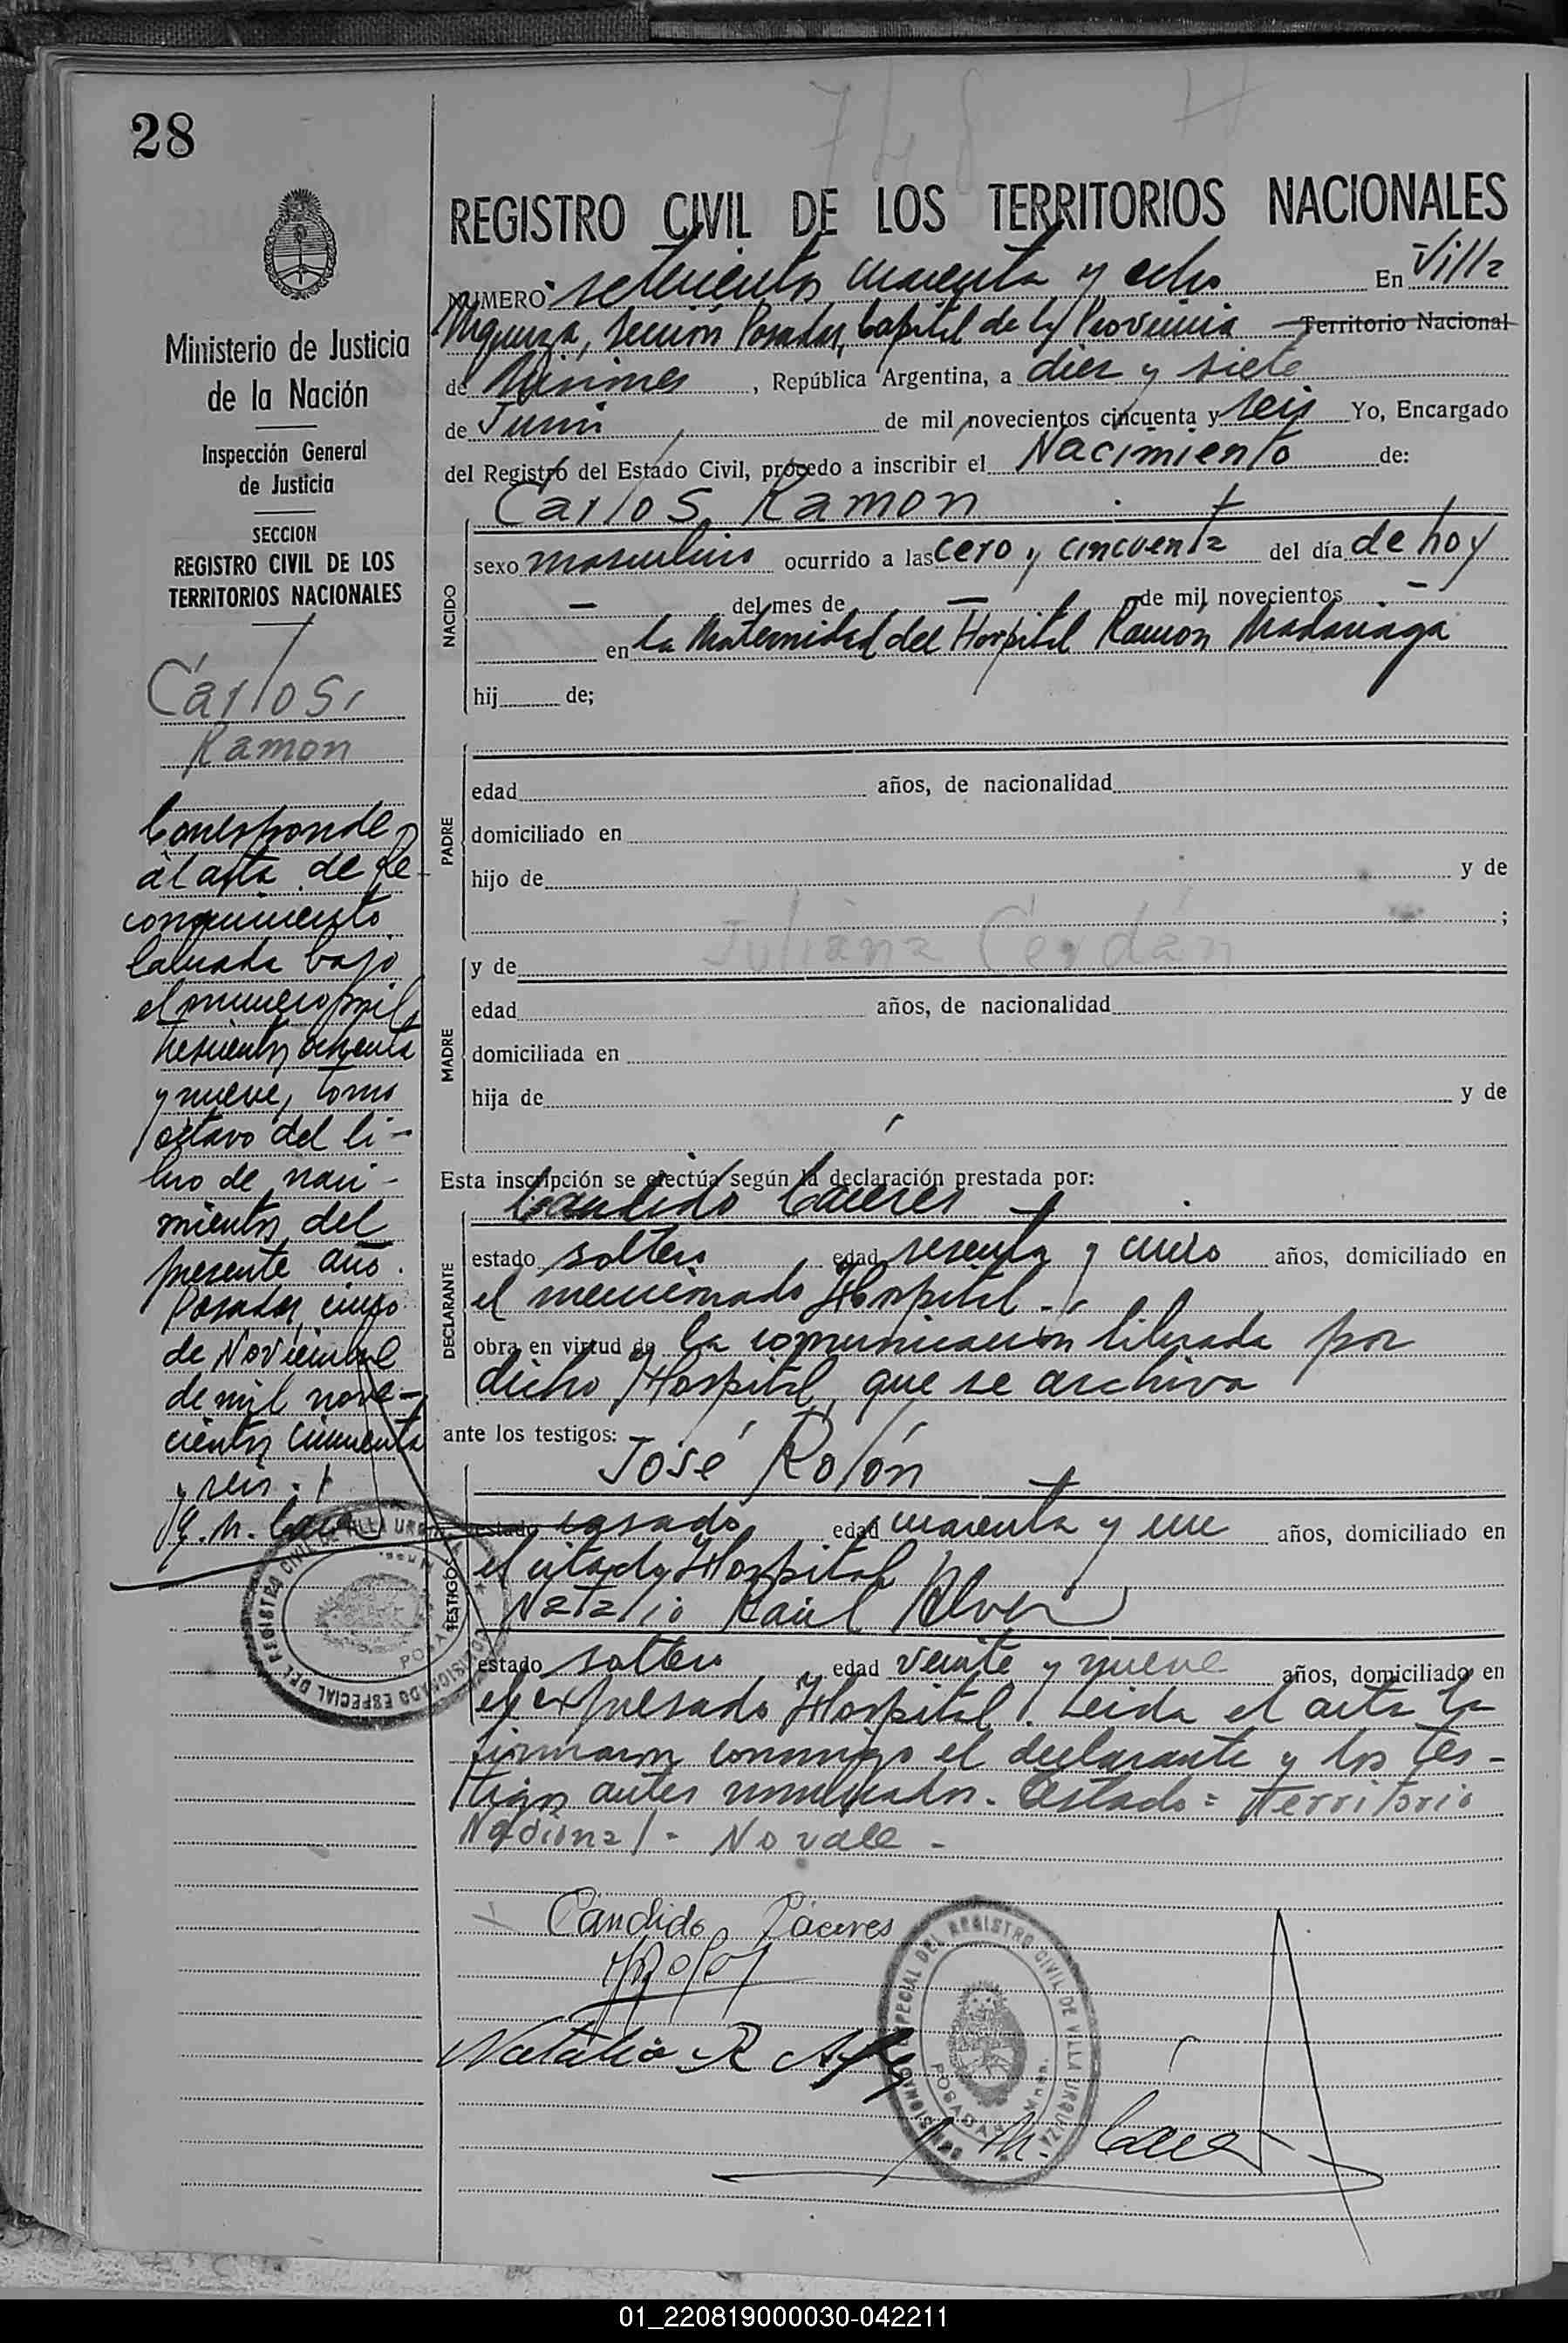 748
28
REGISTRO CIVIL DE LOS TERRITORIOS NACIONALES
NUMERO setecientos cuarenta y ocho En Villa
Urquiza, sección Posadas, Capital de la Provincia Territorio Nacional
de Misiones, República Argentina, a diez y siete
de Junio de mil novecientos cincuenta y seis Yo, Encargado
del Registro del Estado Civil, procedo a inscribir el Nacimiento de:
Carlos Ramon
NACIDO
sexo masculino ocurrido a las cero y cincuenta del día de hoy
— del mes de — de mil novecientos —
en la Maternidad del Hospital Ramón Madariaga
hij de;
PADRE
edad años, de nacionalidad
domiciliado en
hijo de y de
;
Juliana Cerdán
y de
MADRE
edad años, de nacionalidad
domiciliada en
hija de y de
Esta inscripción se efectúa según la declaración prestada por:
Candido Caceres
DECLARANTE
estado soltero edad sesenta y cinco años, domiciliado en
el mencionado Hospital.
obra en virtud de la comunicación librada por
dicho Hospital, que se archiva
ante los testigos:
José Rolón
TESTIGOS
estado casado edad cuarenta y un años, domiciliado en
el citado Hospital
Natalio Raúl Alvez
estado soltero edad veinte y nueve años, domiciliado en
el expresado Hospital. Leida el acta la
firmaron conmigo el declarante y los tes-
tigos antes nombrados. Testado = Territorio
Nacional - No vale -
Candido Cáceres
Natalio R
COMISIONADO ESPECIAL DEL REGISTRO CIVIL DE VILLA URQUIZA
POSADAS Mnes.
Ministerio de Justicia
de la Nación
Inspección General
de Justicia
SECCION
REGISTRO CIVIL DE LOS
TERRITORIOS NACIONALES
Carlos
Ramon
Corresponde
al acta de Re-
conocimiento
labrada bajo
el numero mil
trescientos ochenta
y nueve, tomo
octavo del li-
bro de naci-
mientos del
presente año.
Posadas, cinco
de Noviembre
de mil nove-
cientos cincuenta
y seis.
COMISIONADO ESPECIAL DEL REGISTRO CIVIL DE VILLA URQUIZA
POSADAS Mnes.
01_220819000030-042211